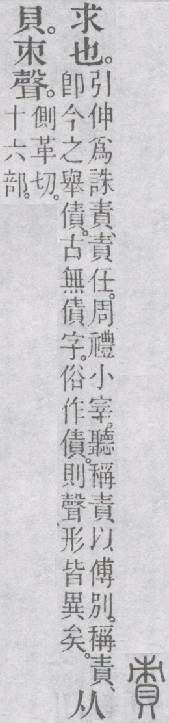 責
求也。
引伸爲誅責、責任。周禮小宰。聽稱責以傅別。稱責、
卽今之舉債。古無債字。俗作債。則聲形皆異矣。
从
貝。朿聲。
側革切。
十六部。